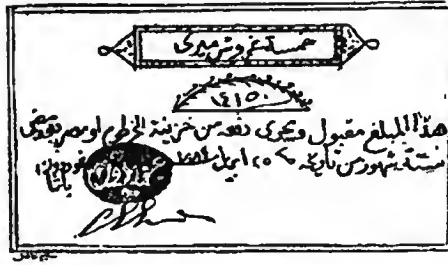 خمسة غروش ميرى
١٤١٥٠
هذا المبلغ مقبول ويجرى دفعه من خزينة الخرطوم او مصر بعد مضى
ستة شهور من تاريخه ٢٥ ابريل ١٨٨٤ غوردون باشا